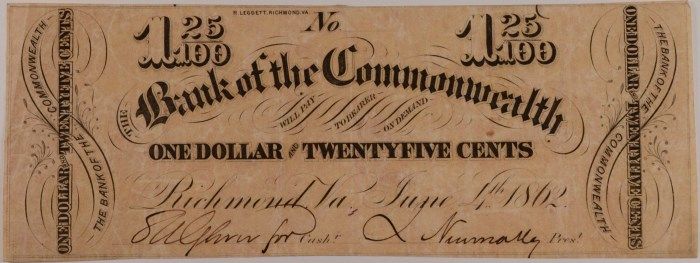 R. LEGGETT, RICHMOND, VA.
1 25/100 No 1 25/100
THE Bank of the Commonwealth
WILL PAY TO BEARER ON DEMAND
ONE DOLLAR AND TWENTYFIVE CENTS
Richmond, Va. June 4th 1862
for Cash.r Pres.t
ONE DOLLAR AND TWENTYFIVE CENTS
THE BANK OF THE COMMONWEALTH
THE BANK OF THE COMMONWEALTH
ONE DOLLAR AND TWENTYFIVE CENTS